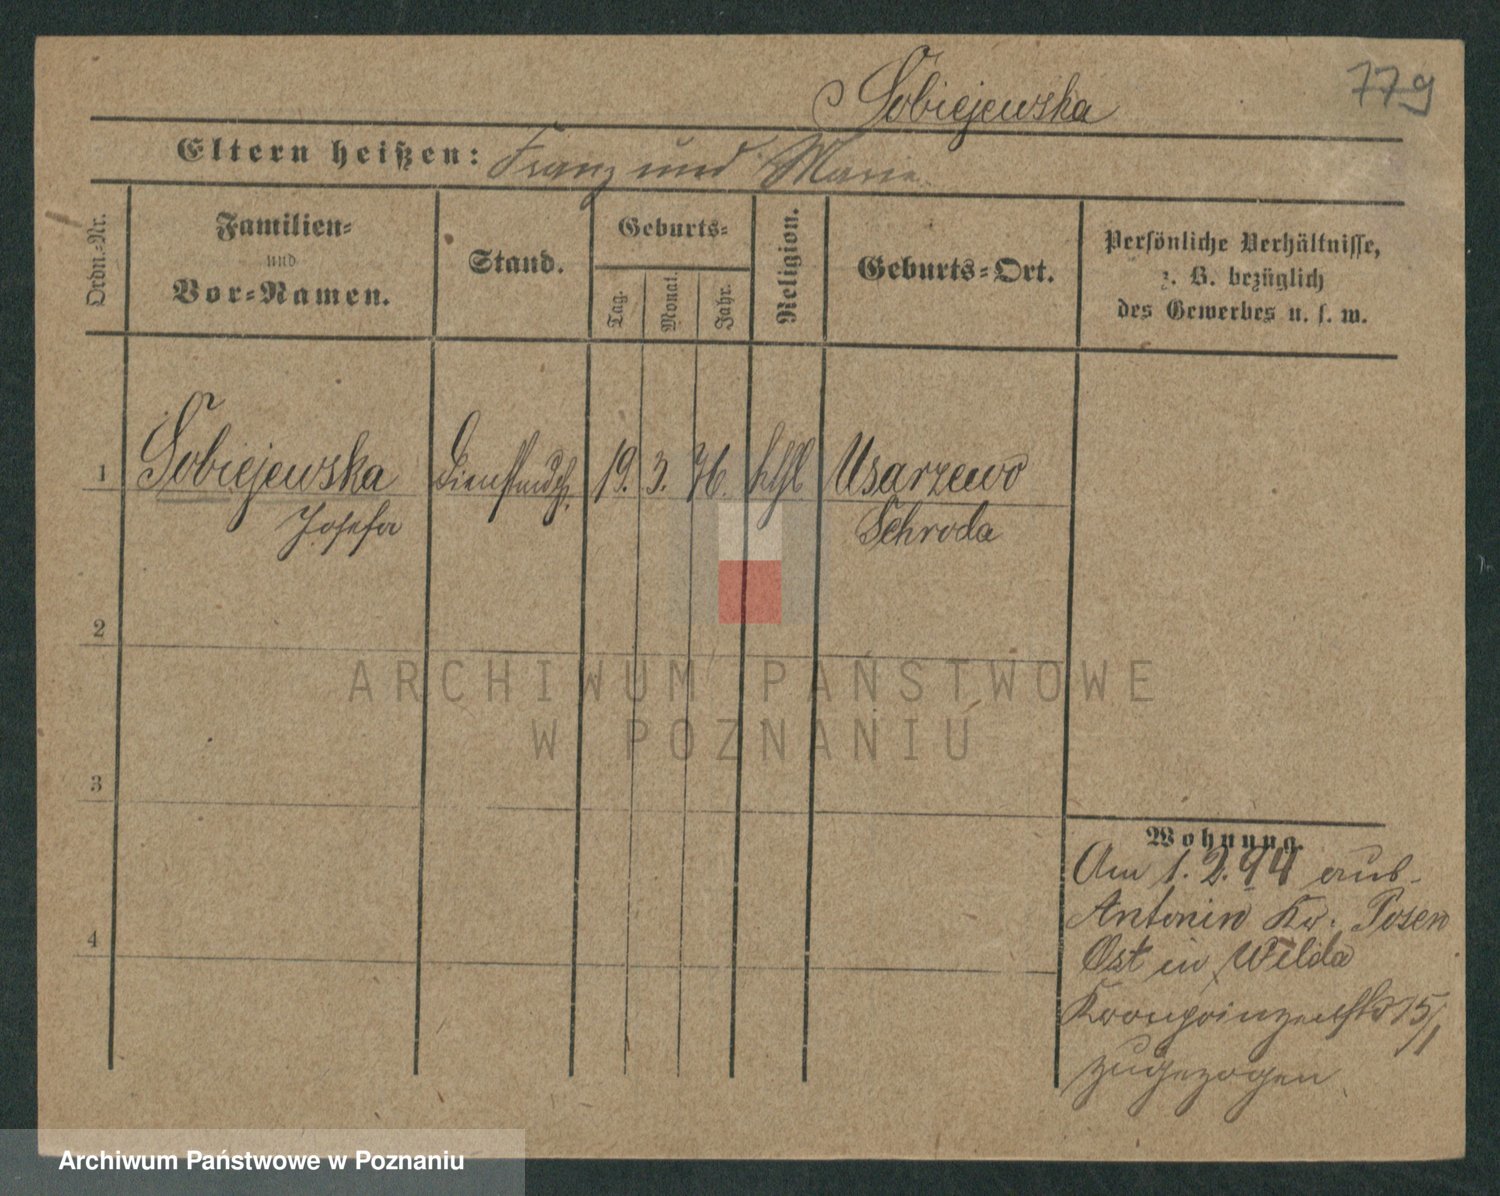 Sobiejewska
779
Eltern heißen: Franz und Marie
Ordn.-Nr.
Familien-
und
Vor-Namen.
Stand.
Geburts-
Tag.
Monat.
Jahr.
Religion.
Geburts-Ort.
Persönliche Verhältnisse,
z. B. bezüglich
des Gewerbes u. s. w.
1 Sobiejewska 19. 3. 76. kthl Usarzewo
Josefa Schroda
2
ARCHIWUM PAŃSTWOWE
W POZNANIU
3
Wohnung.
Am 1. 2. 94 aus
Antonin Kr. Posen
4
Ost in Wilda
Kronprinzenstr 15/1
zugezogen
Archiwum Państwowe w Poznaniu